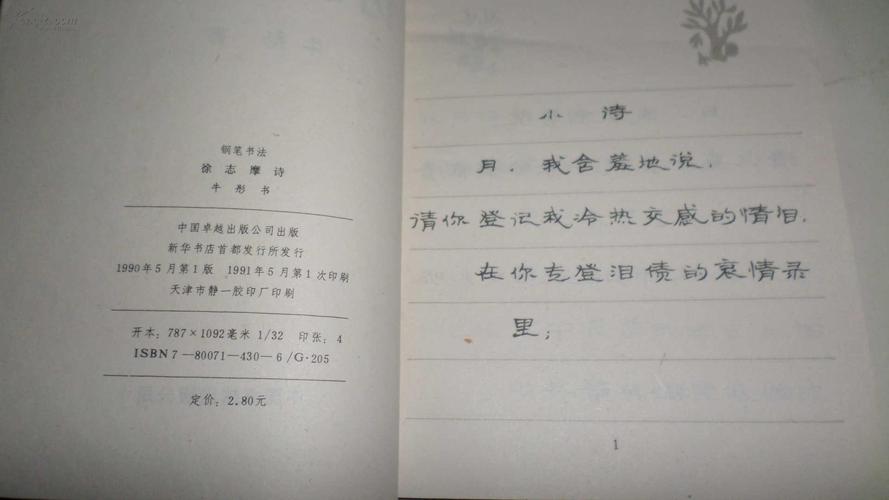 钢笔书法
徐志摩诗
牛彤 书
中国卓越出版公司出版
新华书店首都发行所发行
1990年5月第1版 1991年5月第1次印刷
天津市静一胶印厂印刷
开本：787×1092毫米 1/32 印张：4
ISBN7—80071—430—6/G·205
定价：2.80元
小诗
月，我含羞地说，
请你登记我冷热交感的情泪，
在你专登泪债的哀情录
里；
1